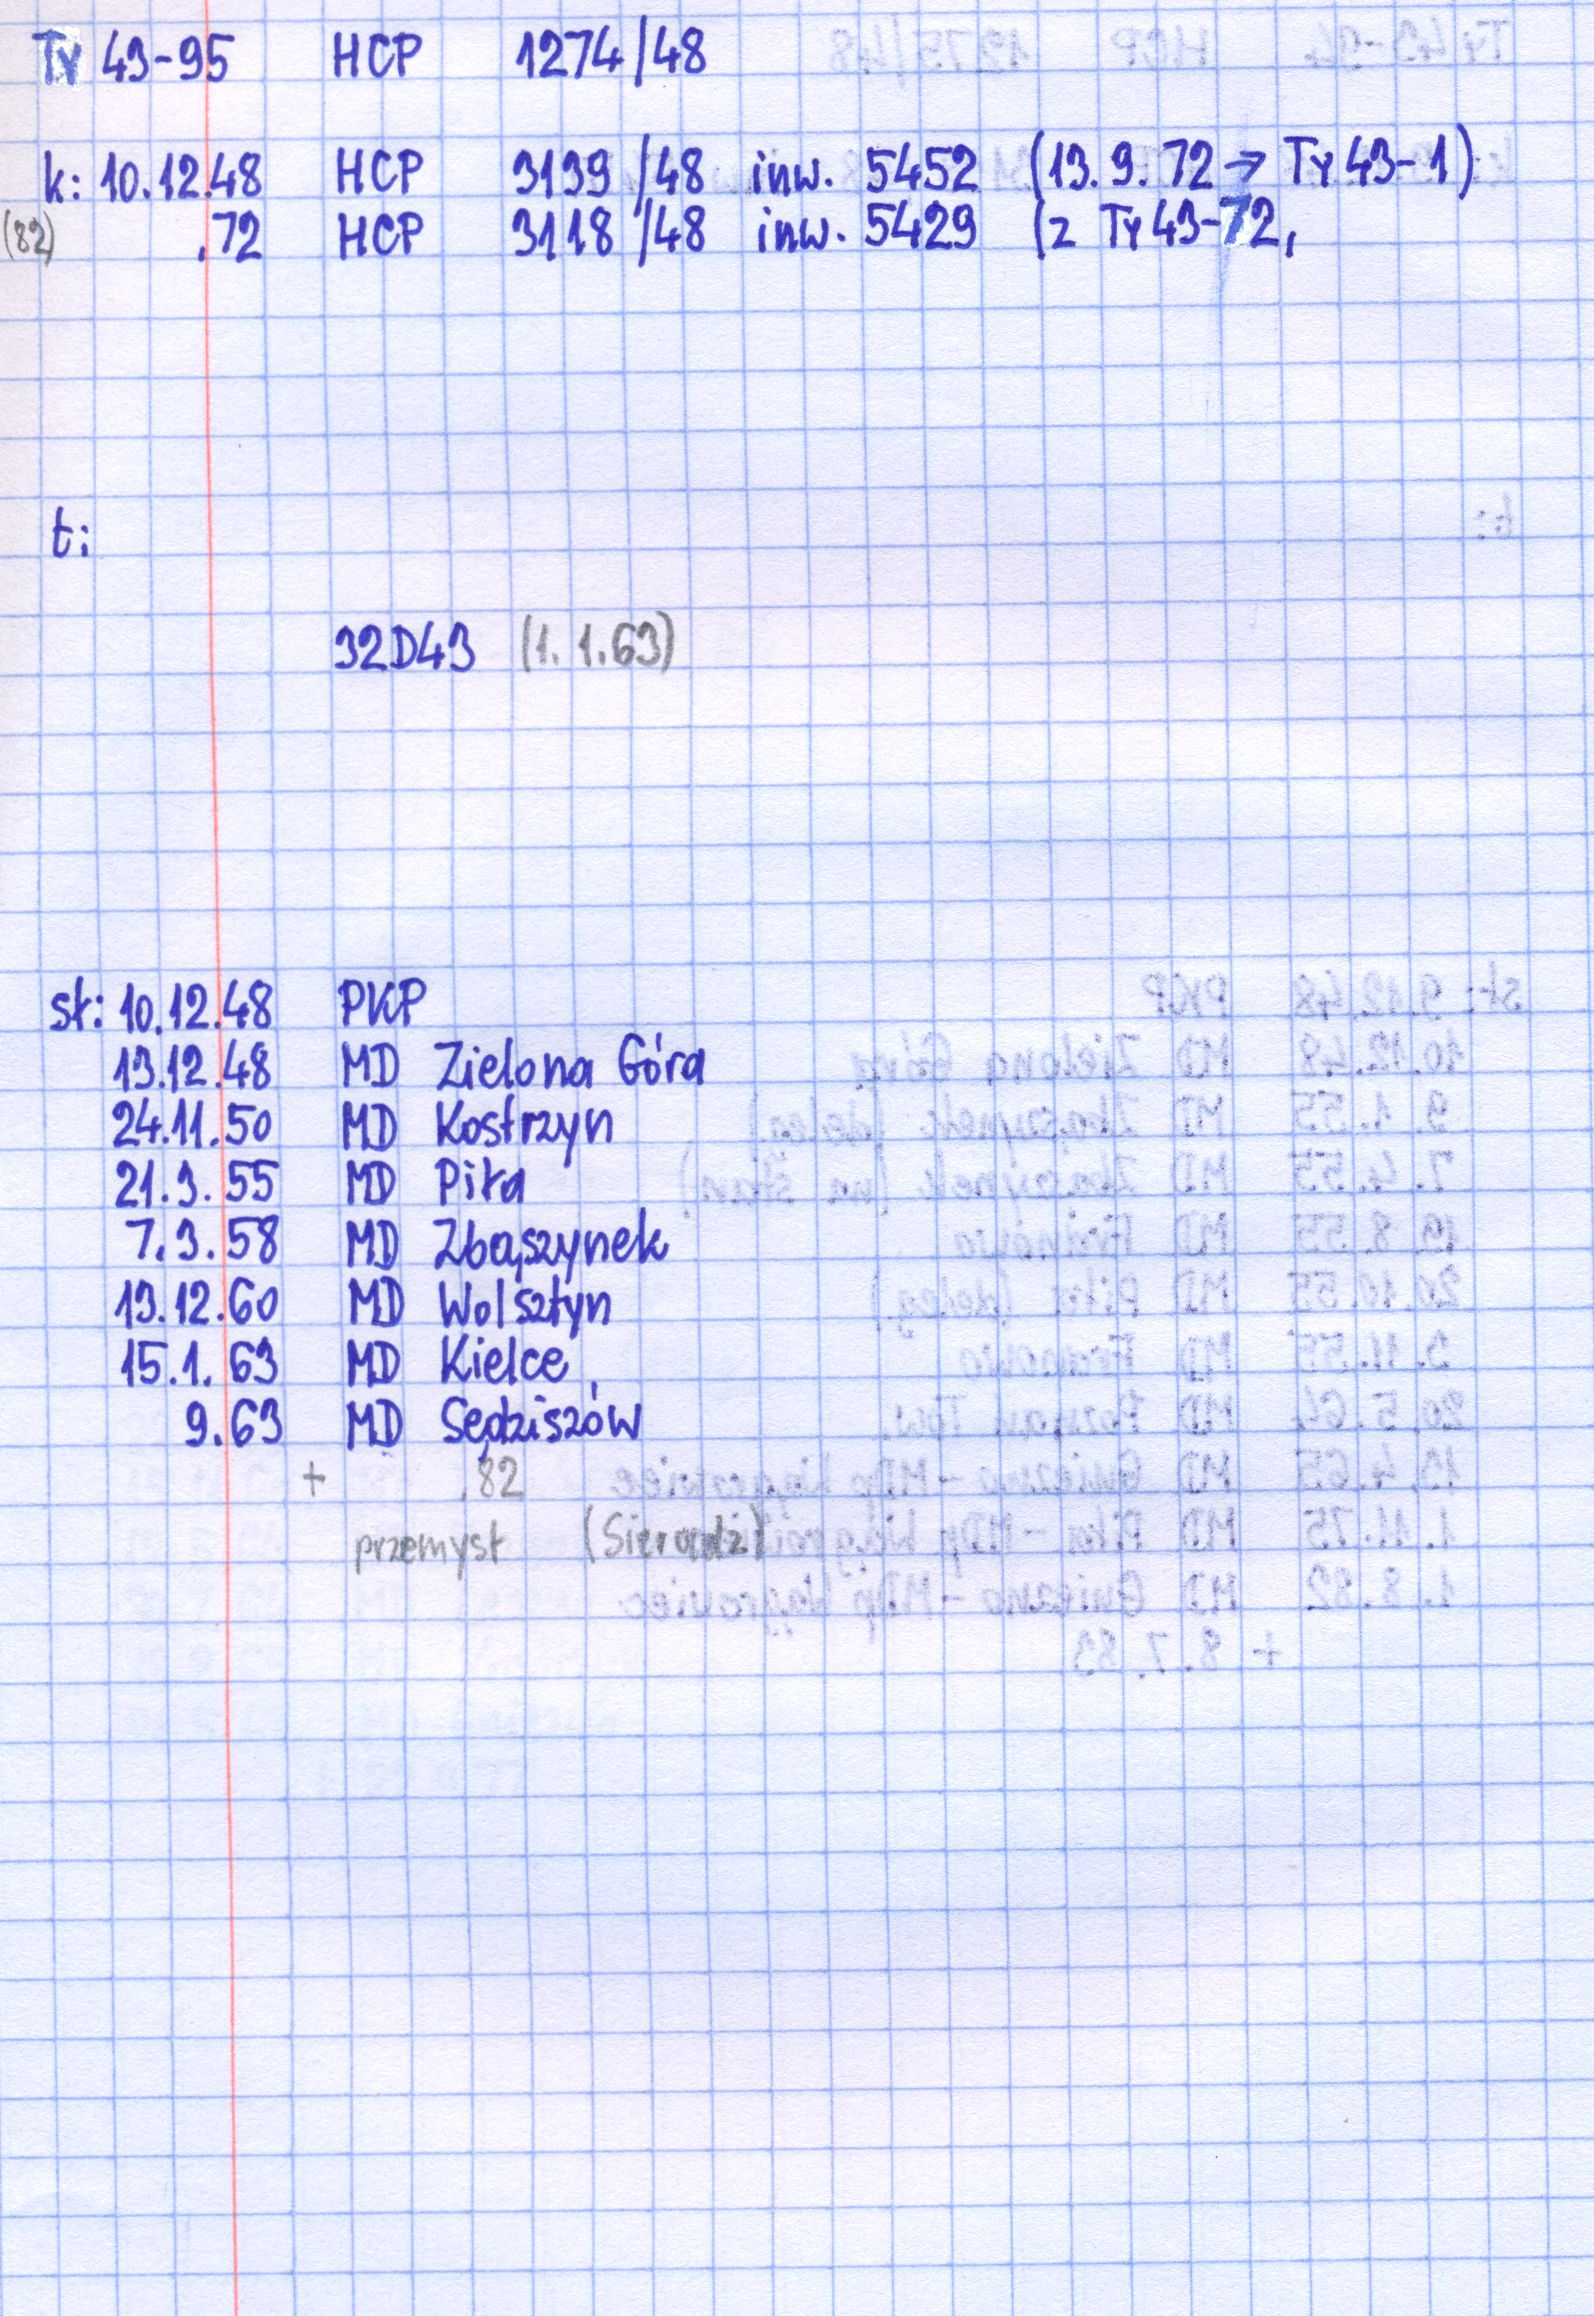 Ty 43-95 HCP 1274/48
k: 10.12.48 HCP 3139/48 inw. 5452 (13.9.72 → Ty 43-1)
(82) .72 HCP 3118/48 inw. 5429 (z Ty 43-72,
t:
32D43 (1.1.63)
st: 10.12.48 PKP
13.12.48 MD Zielona Góra
24.11.50 MD Kostrzyn
21.3.55 MD Piła
7.3.58 MD Zbąszynek
13.12.60 MD Wolsztyn
15.1.63 MD Kielce
9.63 MD Sędziszów
+ .82
przemysł (Sieradz)